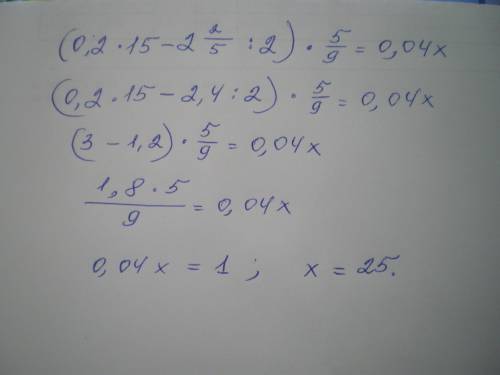 (0,2 · 15 − 2 2/5 : 2) · 5/9 = 0,04x
(0,2 · 15 − 2,4 : 2) · 5/9 = 0,04x
(3 − 1,2) · 5/9 = 0,04x
1,8 · 5/9 = 0,04x
0,04x = 1 ; x = 25.